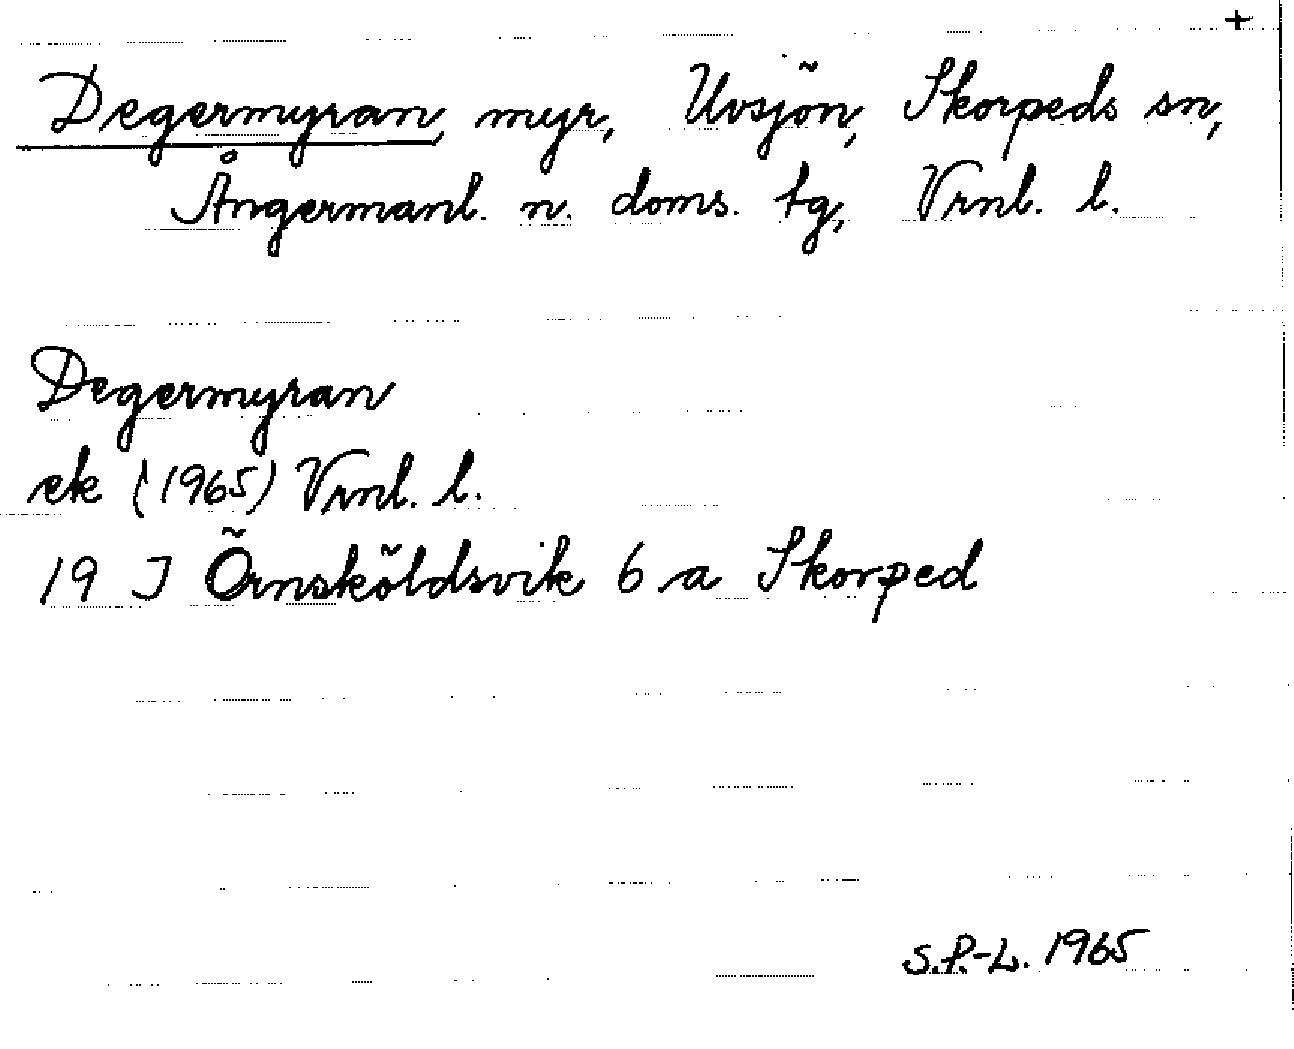 +
Degermyran, myr, Uvsjön, Skorpeds sn,
Ångermanl. n. doms. tg, Vrnl. l.
Degermyran
ek (1965) Vrnl. l.
19 J Örnsköldsvik 6 a Skorped
S.P.-L. 1965